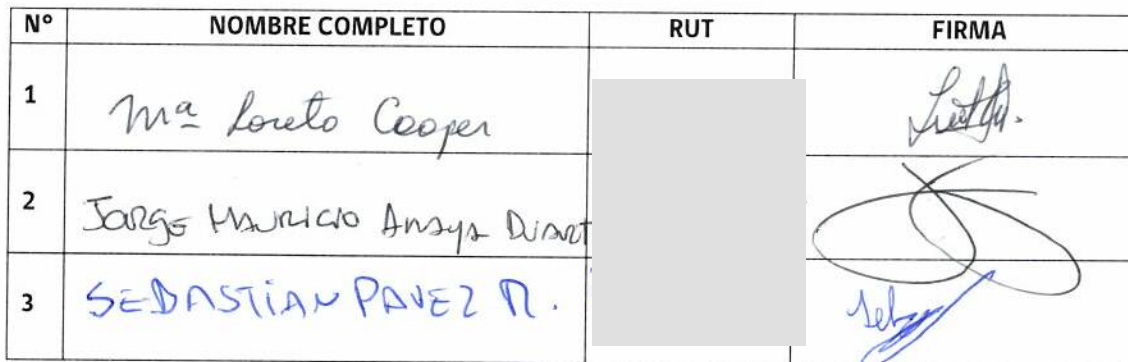 N° NOMBRE COMPLETO RUT FIRMA
1 Mª Loreto Cooper
2 Jorge Mauricio Anaya Duart
3 SEBASTIAN PAVEZ R.